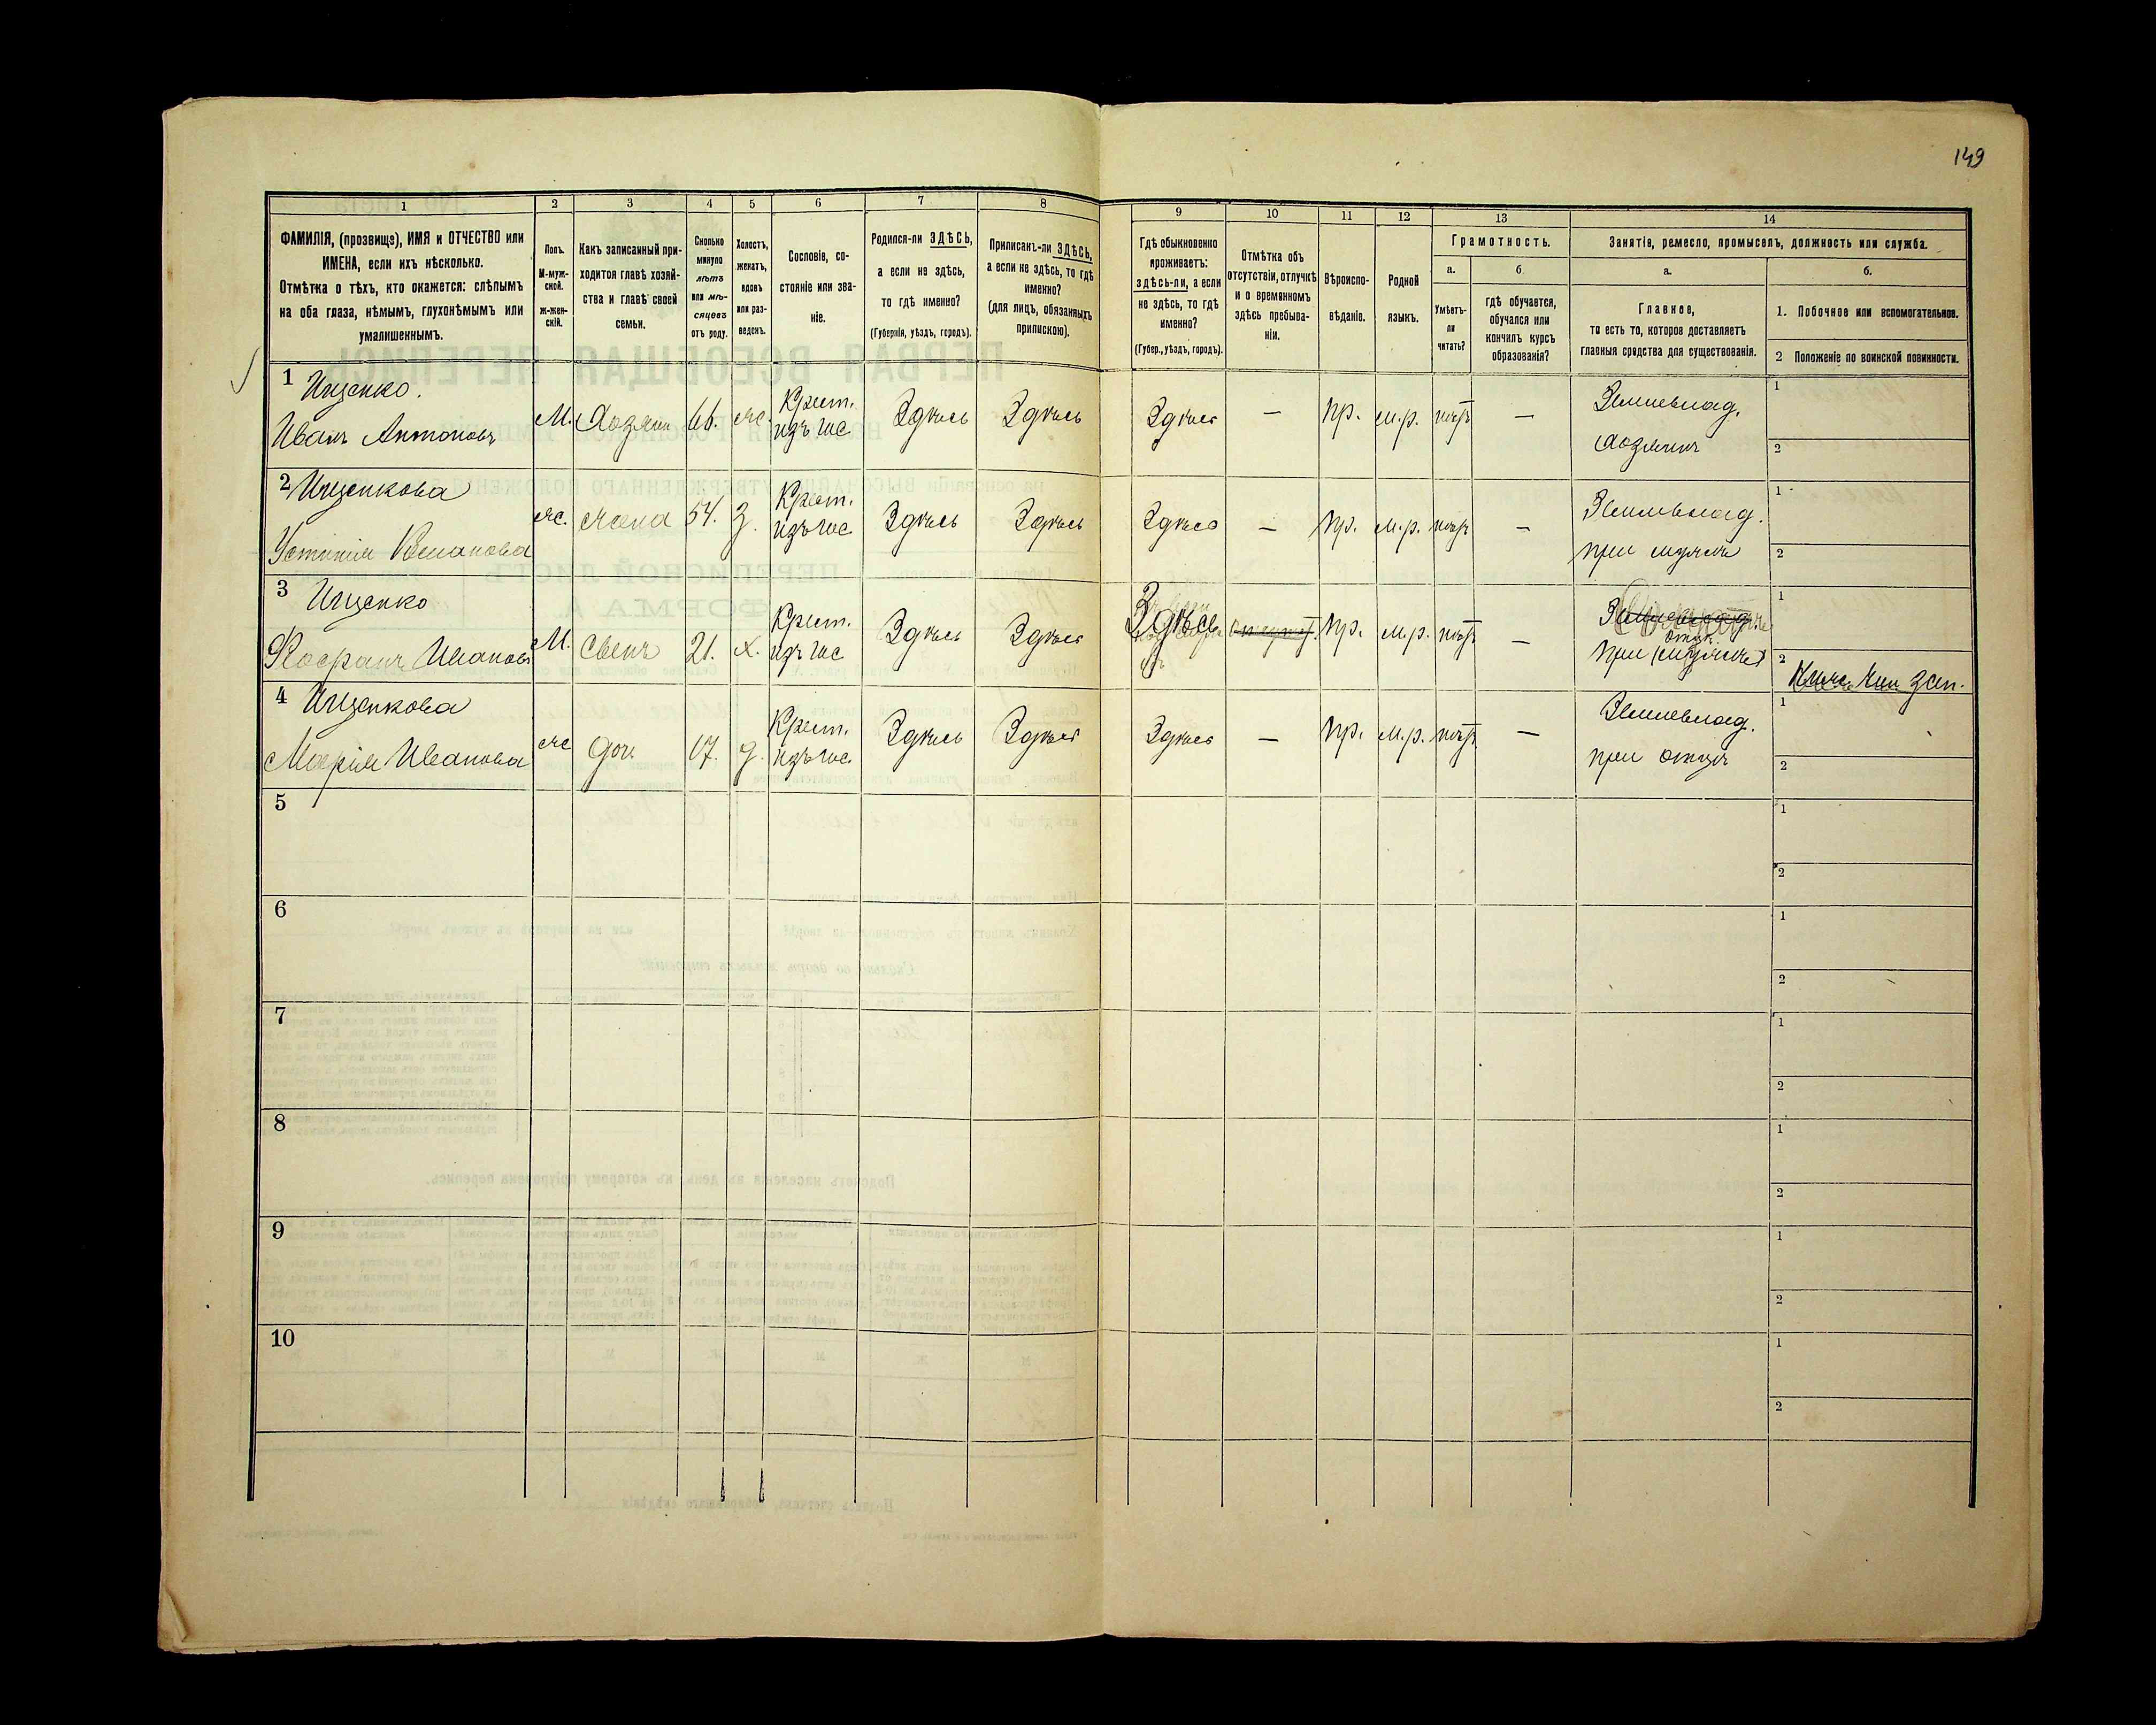 149
1
2
3
4
5
6
7
8
9
10
11
12
13
14
ФАМИЛІЯ, (прозвище), ИМЯ и ОТЧЕСТВО или
ИМЕНА, если ихъ нѣсколько.
Отмѣтка о тѣхъ, кто окажется: слѣпымъ
на оба глаза, нѣмымъ, глухонѣмымъ или
умалишеннымъ.
Полъ.
М-муж-
ской.
ж-жен-
скій.
Какъ записанный при-
ходится главѣ хозяй-
ства и главѣ своей
семьи.
Сколько
минуло
лѣтъ
или мѣ-
сяцевъ
отъ роду.
Холостъ,
женатъ,
вдовъ
или раз-
веденъ.
Сословіе, со-
стояніе или зва-
ніе.
Родился-ли ЗДѢСЬ,
а если не здѣсь,
то гдѣ именно?
(Губернія, уѣздъ, городъ).
Приписанъ-ли ЗДѢСЬ,
а если не здѣсь, то гдѣ
именно?
(для лицъ, обязанныхъ
припискою).
Гдѣ обыкновенно
проживаетъ:
здѣсь-ли, а если
не здѣсь, то гдѣ
именно?
(Губер., уѣздъ, городъ).
Отмѣтка объ
отсутствіи, отлучкѣ
и о временномъ
здѣсь пребыва-
ніи.
Вѣроиспо-
вѣданіе.
Родной
языкъ.
Грамотность.
а.
Умѣетъ-
ли
читать?
б.
гдѣ обучается,
обучался или
кончилъ курсъ
образованія?
Занятіе, ремесло, промыселъ, должность или служба.
а.
Главное,
то есть то, которое доставляетъ
главныя средства для существованія.
б.
1. Побочное или вспомогательное.
2 Положеніе по воинской повинности.
1 Ищенко.
Иванъ Антоновъ
М. Хозяин 66. ж. Крест. изъ гос. Здѣсь Здѣсь Здѣсь — пр. м.р. нѣтъ — Землевлад.
хозяинъ
1
2
2 Ищенкова
Устинія
ж. жена 54. з. Крест. изъ гос. Здѣсь Здѣсь Здѣсь — пр. м.р. нѣтъ — Землевлад.
при мужѣ
1
2
3 Ищенко
Иванов
М. Сынъ 21. х. Крест. изъ гос Здѣсь Здѣсь Здѣсь пр. м.р. нѣтъ —
при
отцѣ
1
2
зап.
4 Ищенкова
Марія Иванова
ж доч. 17. д. Крест. изъ гос. Здѣсь Здѣсь Здѣсь — пр. м.р. нѣтъ — Землевлад.
при отцѣ
1
2
5
1
2
6
1
2
7
1
2
8
1
2
9
1
2
10
1
2